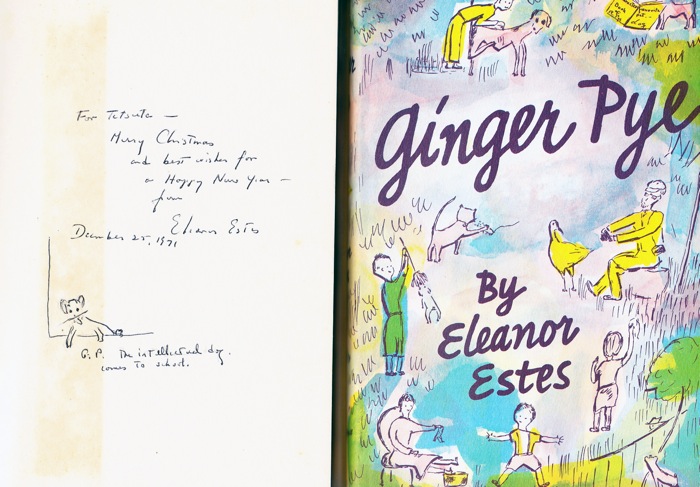 For Tetsuta —
Merry Christmas
and best wishes for
a Happy New Year —
from
Eleanor Estes
December 25, 1971
G. P. The intellectual dog.
comes to school.
Ginger Pye
By
Eleanor
Estes